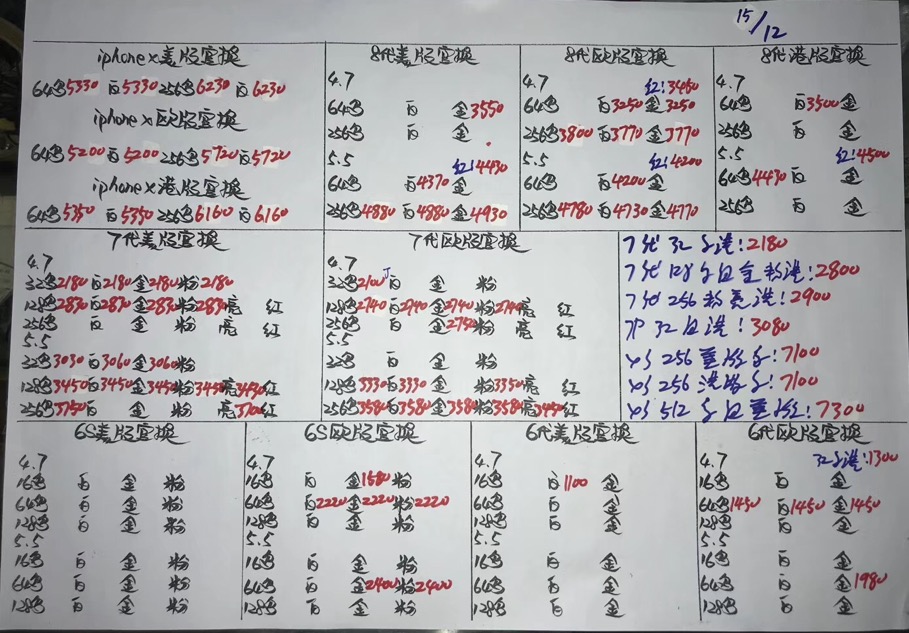 15/12
iphone x美版官换
64色5330 百5330 256色6230 百6230
iphone x欧版官换
64色5200 百5200 256色5720 百5720
iphone x港版官换
64色5350 百5350 256色6160 百6160
8代美版官换
4.7
64色 百 金3550
256色 百 金
5.5 红:4430
64色 百4370 金
256色4880 百4880 金4930
8代欧版官换
4.7 红:3450
64色 百3250 金3250
256色3800 百3770 金3770
5.5 红:4200
64色 百4200 金
256色4780 百4730 金4770
8代港版官换
4.7
64色 百3500 金
256色 百 金
5.5 红:4500
64色4430 百 金
256色 百 金
7代美版官换
4.7
32色2180 百2180 金2180 粉2180
128色2830 百2830 金2830 粉2830 亮 红
256色 百 金 粉 亮 红
5.5
32色3030 百3060 金3060 粉
128色3450 百3450 金3450 粉3450 亮3450 红
256色3750 百 金 粉 亮3700 红
7代欧版官换
4.7
32色2100 百 金 粉
128色2740 百2740 金2740 粉2740 亮 红
256色 百 金2752 粉 亮 红
5.5
32色 百 金 粉
128色3330 百3330 金 粉3350 亮 红
256色3580 百3580 金3580 粉3580 亮3450 红
7代 32 子港:2180
7代 128 子白金粉港:2800
7代 256 粉亮港:2900
7P 32 白港:3080
256 :7100
256 港 :7100
512 子白 :7300
6S美版官换
4.7
16色 百 金 粉
64色 百 金 粉
128色 百 金 粉
5.5
16色 百 金 粉
64色 百 金 粉
128色 百 金 粉
6S欧版官换
4.7
16色 百 金1580 粉
64色 百2220 金2220 粉2220
128色 百 金 粉
5.5
16色 百 金 粉
64色 百 金2400 粉2400
128色 百 金 粉
6代美版官换
4.7
16色 百1100 金
64色 百 金
128色 百 金
5.5
16色 百 金
64色 百 金
128色 百 金
6代欧版官换
4.7 32子港:1300
16色 百 金
64色1450 百1450 金1450
128色 百 金
5.5
16色 百 金
64色 百 金1980
128色 百 金